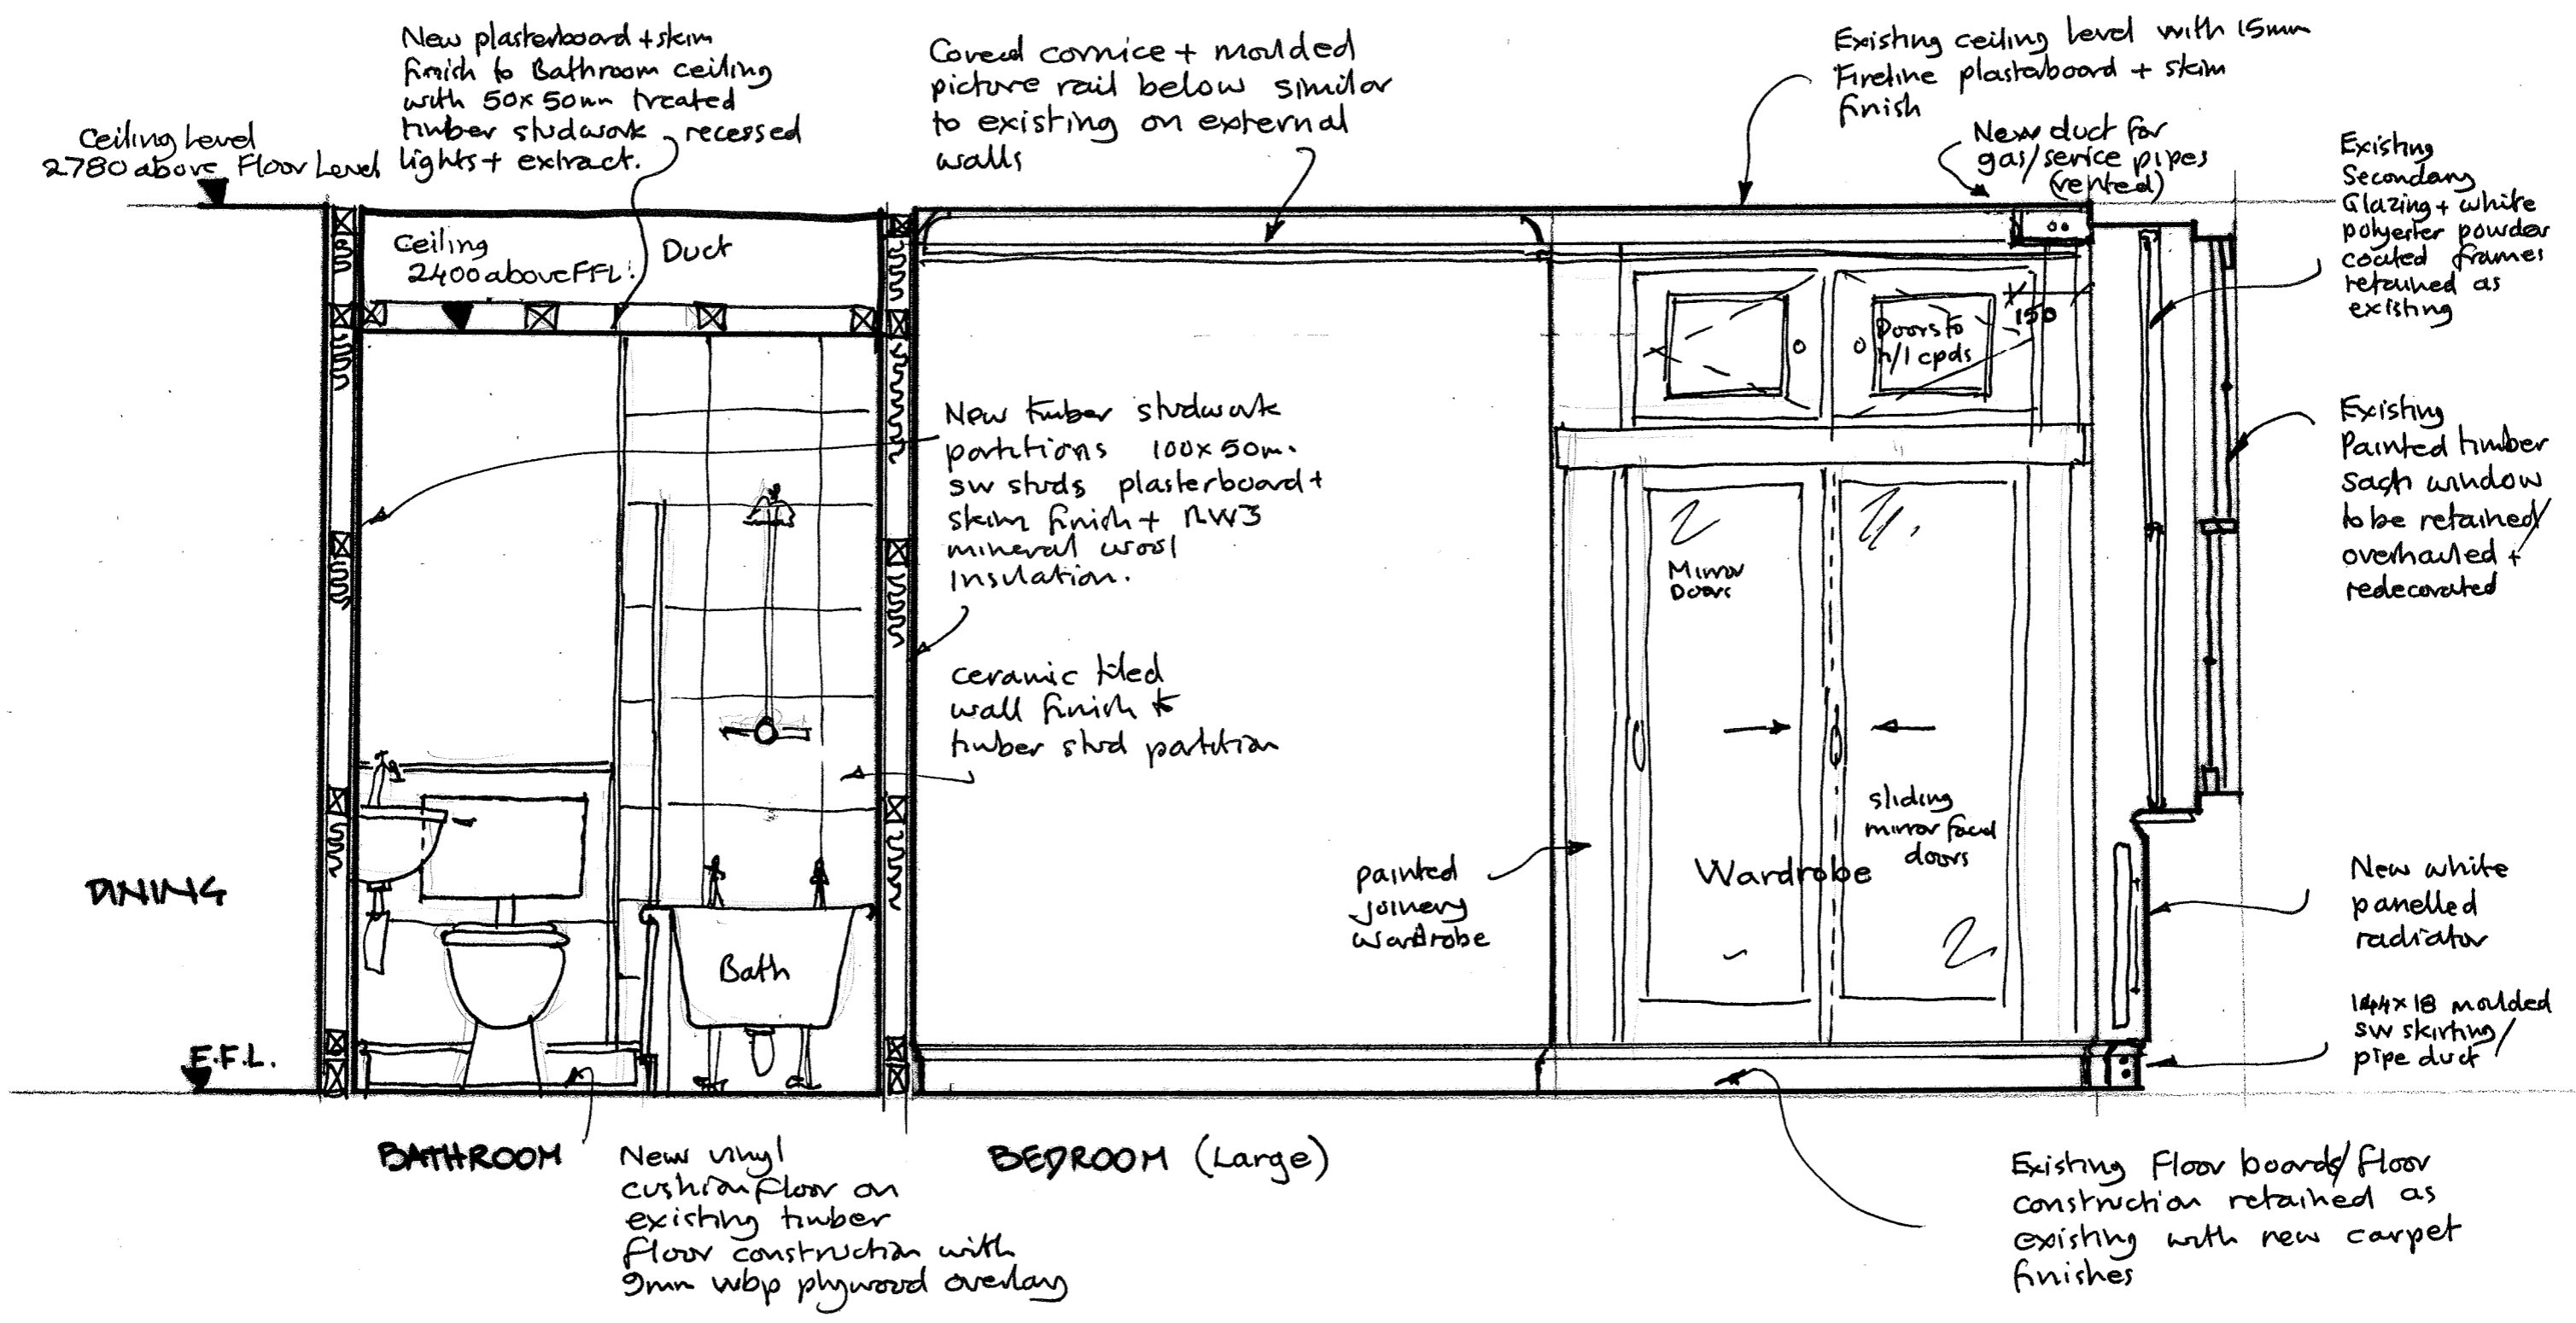 New plasterboard + skim
finish to Bathroom ceiling
with 50x50mm treated
timber studwork, recessed
lights + extract.
Ceiling Level
2780 above Floor Level
Coved cornice + moulded
picture rail below similar
to existing on external
walls
Existing ceiling level with 15mm
Fireline plasterboard + skim
finish
New duct for
gas/service pipes
(vented)
Existing
Secondary
Glazing + white
polyester powder
coated frames
retained as
existing
Ceiling
2400 above FFL.
Duct
Doors to
h/l cpds
150
New timber studwork
partitions 100x50m.
sw studs plasterboard +
skim finish + RW3
mineral wool
Insulation.
Existing
Painted timber
sash window
to be retained/
overhauled +
redecorated
Mirror
Doors
ceramic tiled
wall finish to
timber stud partition
sliding
mirror faced
doors
Wardrobe
painted
joinery
wardrobe
DINING
New white
panelled
radiator
Bath
144x18 moulded
sw skirting/
pipe duct
F.F.L.
BATHROOM
BEDROOM (Large)
New vinyl
cushionfloor on
existing timber
floor construction with
9mm wbp plywood overlay
Existing Floor boards/floor
construction retained as
existing with new carpet
finishes